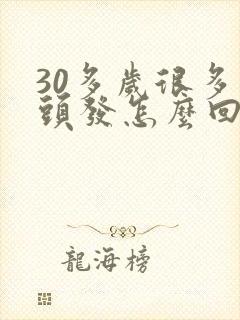 30多歲很多
頭發怎麼回
龍海榜